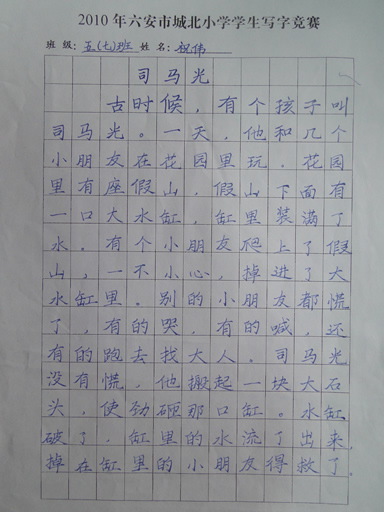 2010年六安市城北小学学生写字竞赛
班级:五(七)班 姓名:祝伟
司马光
古时候，有个孩子叫
司马光。一天，他和几个
小朋友在花园里玩。花园
里有座假山，假山下面有
一口大水缸，缸里装满了
水。有个小朋友爬上了假
山，一不小心，掉进了大
水缸里。别的小朋友都慌
了，有的哭，有的喊，还
有的跑去找大人。司马光
没有慌，他搬起一块大石
头，使劲砸那口缸。水缸
破了，缸里的水流了出来，
掉在缸里的小朋友得救了。